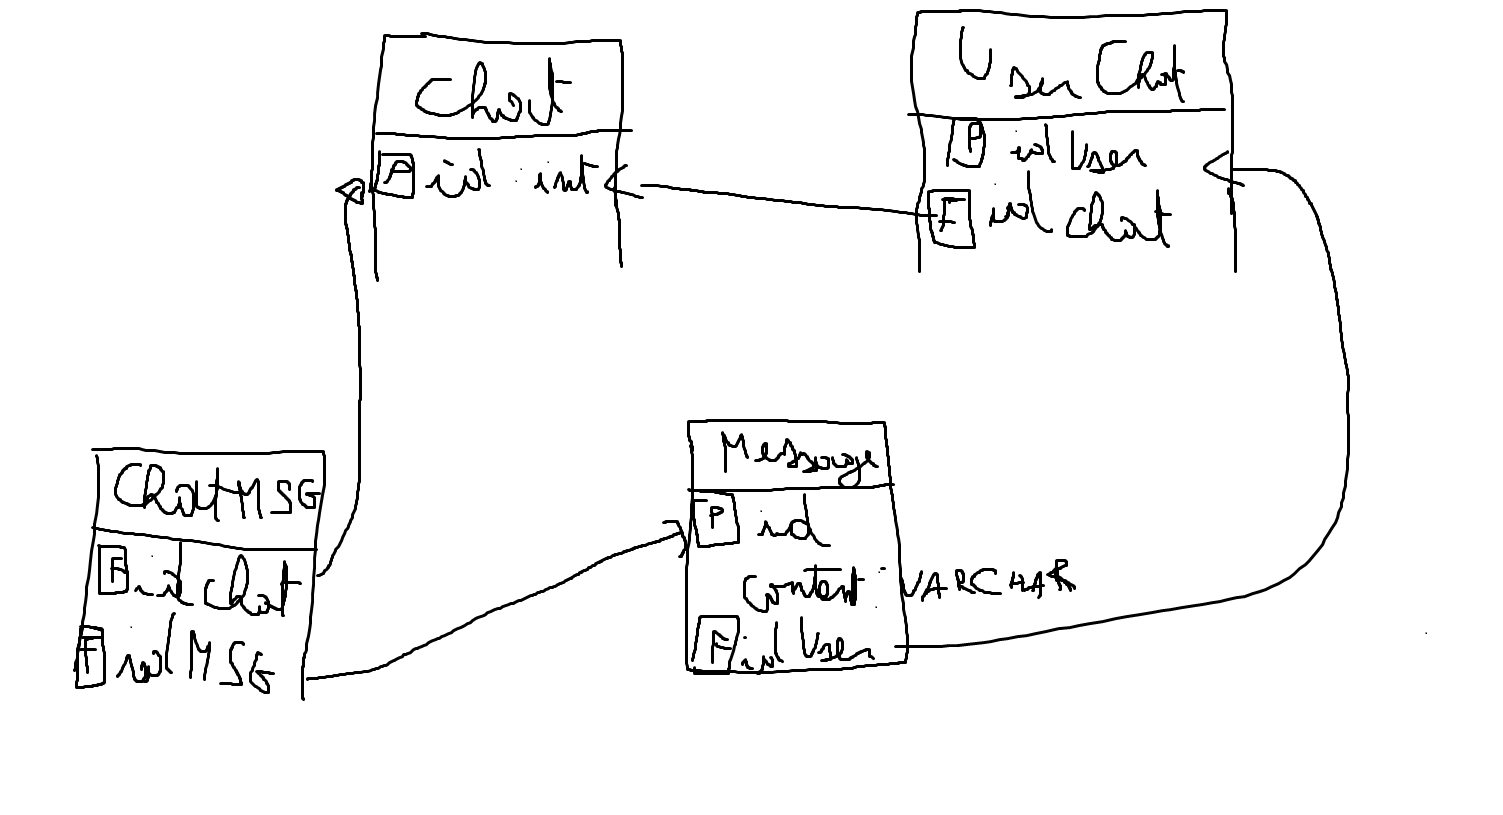 Chat
P id int
User Chat
P id User
F id chat
Chat MSG
F id chat
F id MSG
Message
P id
content : VARCHAR
F id User